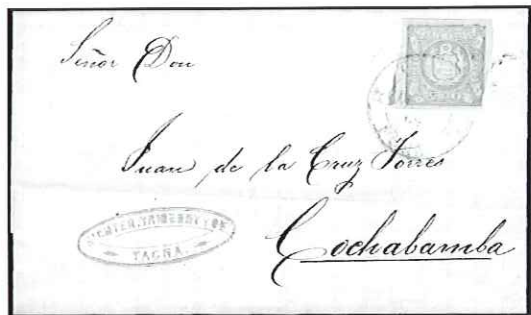 Señor Don
Juan de la Cruz Torres
Cochabamba
TACNA